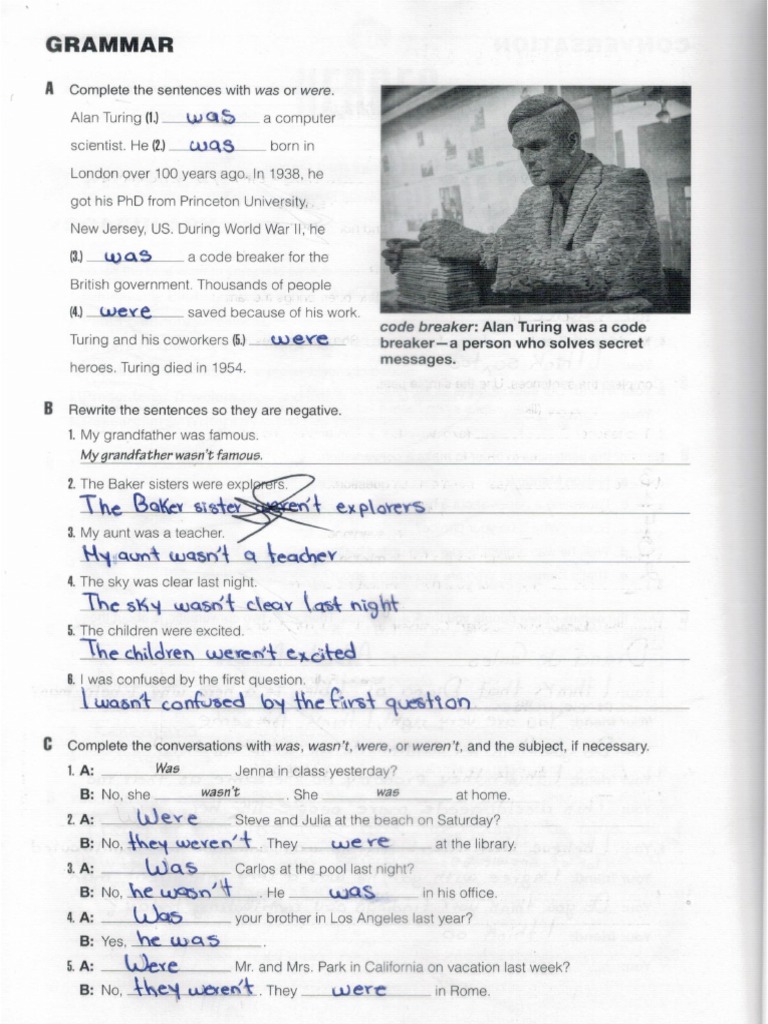 GRAMMAR
A Complete the sentences with was or were.
Alan Turing (1.) was a computer
scientist. He (2.) was born in
London over 100 years ago. In 1938, he
got his PhD from Princeton University,
New Jersey, US. During World War II, he
(3.) was a code breaker for the
British government. Thousands of people
(4.) were saved because of his work.
Turing and his coworkers (5.) were
heroes. Turing died in 1954.
code breaker: Alan Turing was a code
breaker—a person who solves secret
messages.
B Rewrite the sentences so they are negative.
1. My grandfather was famous.
My grandfather wasn't famous.
2. The Baker sisters were explorers.
The Baker sister weren't explorers
3. My aunt was a teacher.
My aunt wasn't a teacher
4. The sky was clear last night.
The sky wasn't clear last night
5. The children were excited.
The children weren't excited
6. I was confused by the first question.
I wasn't confused by the first question
C Complete the conversations with was, wasn't, were, or weren't, and the subject, if necessary.
1. A: Was Jenna in class yesterday?
B: No, she wasn't. She was at home.
2. A: Were Steve and Julia at the beach on Saturday?
B: No, they weren't. They were at the library.
3. A: Was Carlos at the pool last night?
B: No, he wasn't. He was in his office.
4. A: Was your brother in Los Angeles last year?
B: Yes, he was.
5. A: Were Mr. and Mrs. Park in California on vacation last week?
B: No, they weren't. They were in Rome.